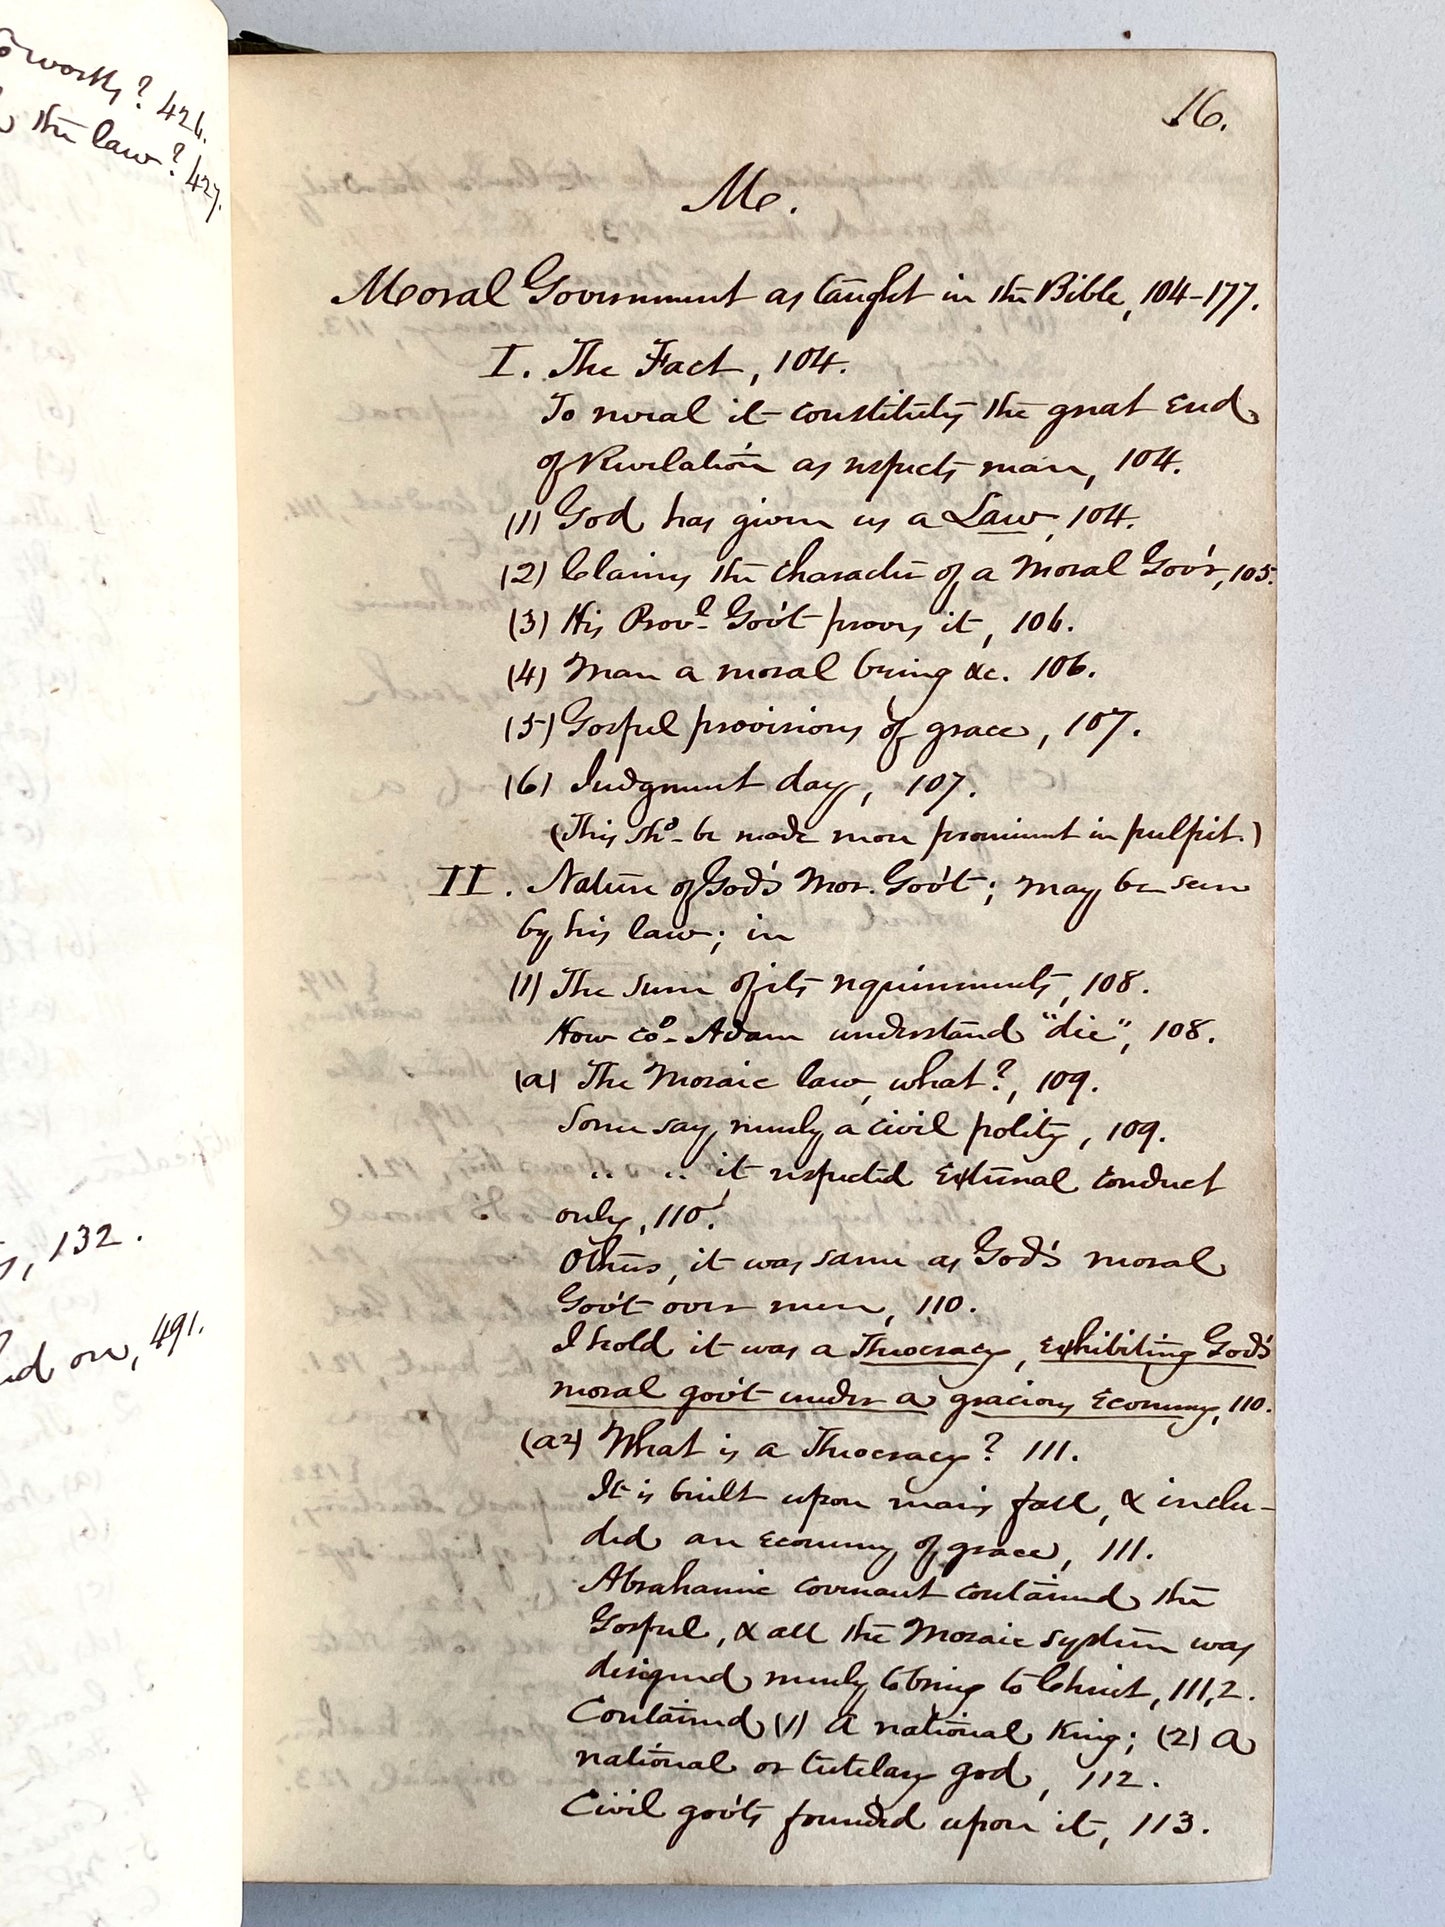 worth? 426.
the law? 427.
132.
on, 491.
16.
M.
Moral Government as taught in the Bible, 104-177.
I. The Fact, 104.
To reveal it constitutes the great End
of Revelation as respects man, 104.
(1) God has given us a Law, 104.
(2) Claims the character of a Moral Gov'r, 105.
(3) His Prov.l Gov't proves it, 106.
(4) Man a moral being &c. 106.
(5) Gospel provisions of grace, 107.
(6) Judgment day, 107.
(This shd be made more prominent in pulpit.)
II. Nature of God's Mor. Gov't; may be seen
by his law; in
(1) The sum of its requirements, 108.
How cod Adam understand "die", 108.
(a) The Mosaic law, what?, 109.
Some say, merely a civil polity, 109.
" " it respected External conduct
only, 110.
Others, it was same as God's moral
Gov't over men, 110.
I hold it was a Theocracy, exhibiting God's
moral gov't under a gracious Economy, 110.
(a2) What is a Theocracy? 111.
It is built upon man's fall, & inclu-
ded an economy of grace, 111.
Abrahamic covenant contained the
Gospel, & all the Mosaic system was
designed merely to bring to Christ, 111,2.
Contained (1) A national King; (2) A
national or tutelary god, 112.
Civil gov'ts founded upon it, 113.